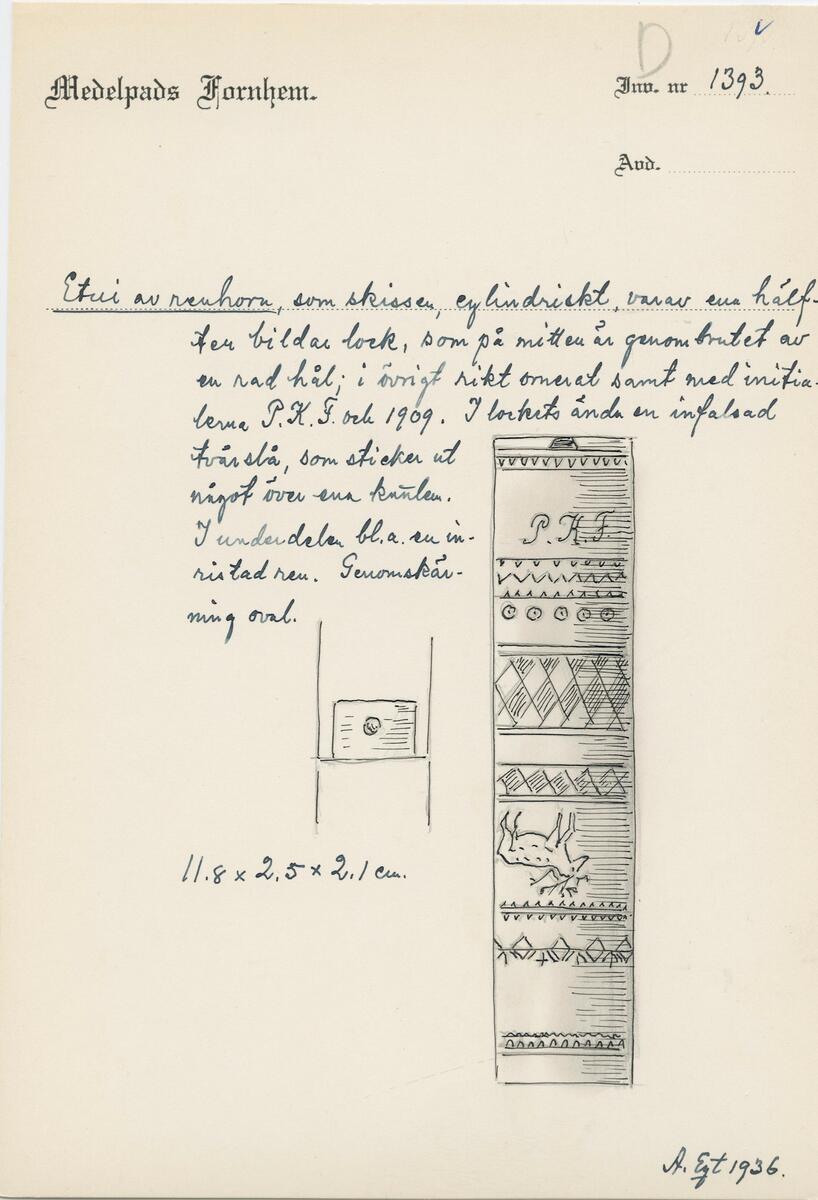 D
Medelpads Fornhem.
Inv. nr 1393.
Avd.
Etui av renhorn, som skissen, cylindriskt, varav ena hälf-
ten bildar lock, som på mitten är genombrutet av
en rad hål; i övrigt rikt ornerat samt med initia-
lerna P.K.F. och 1909. I lockets ända en infalsad
tvärslå, som sticker ut
något över ena kanten.
I underdelen bl.a. en in-
ristad ren. Genomskär-
ning oval.
P.K.F.
11.8 x 2.5 x 2.1 cm.
A. Ezt 1936.